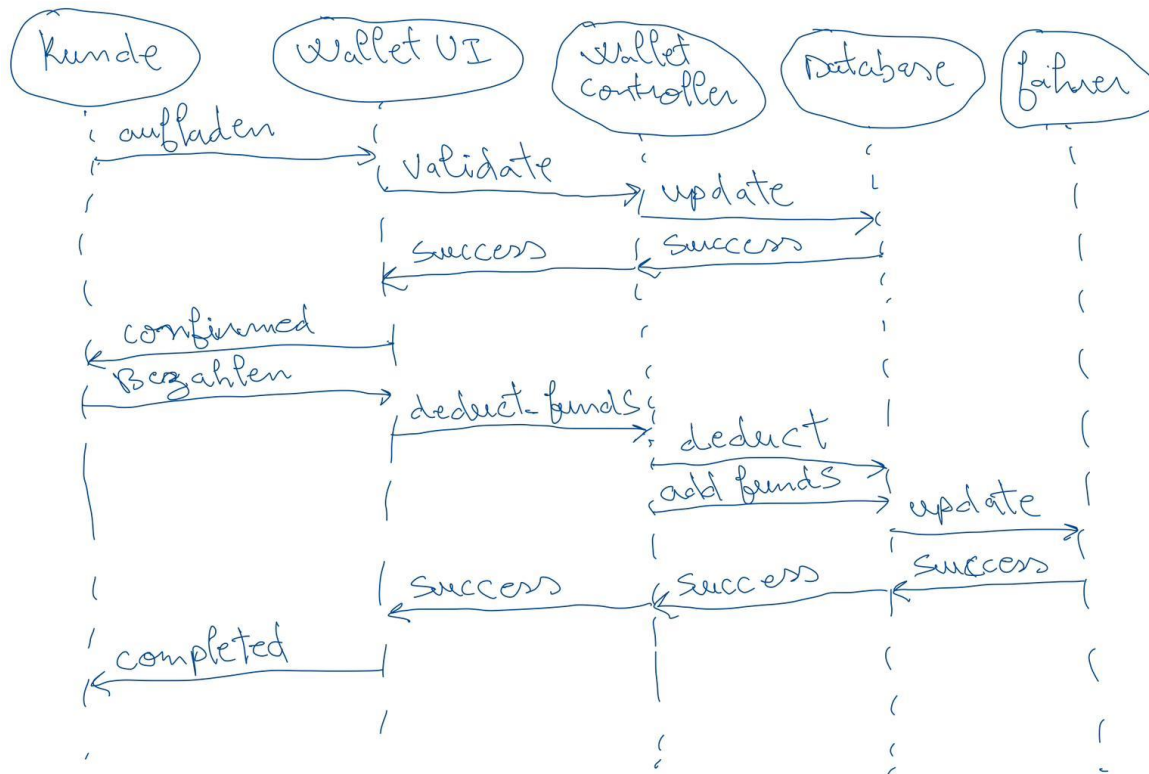 Kunde
Wallet UI
Wallet
controller
Database
fahrer
aufladen
validate
update
success
success
confirmed
Bezahlen
deduct_funds
deduct
add funds
update
success
success
success
completed